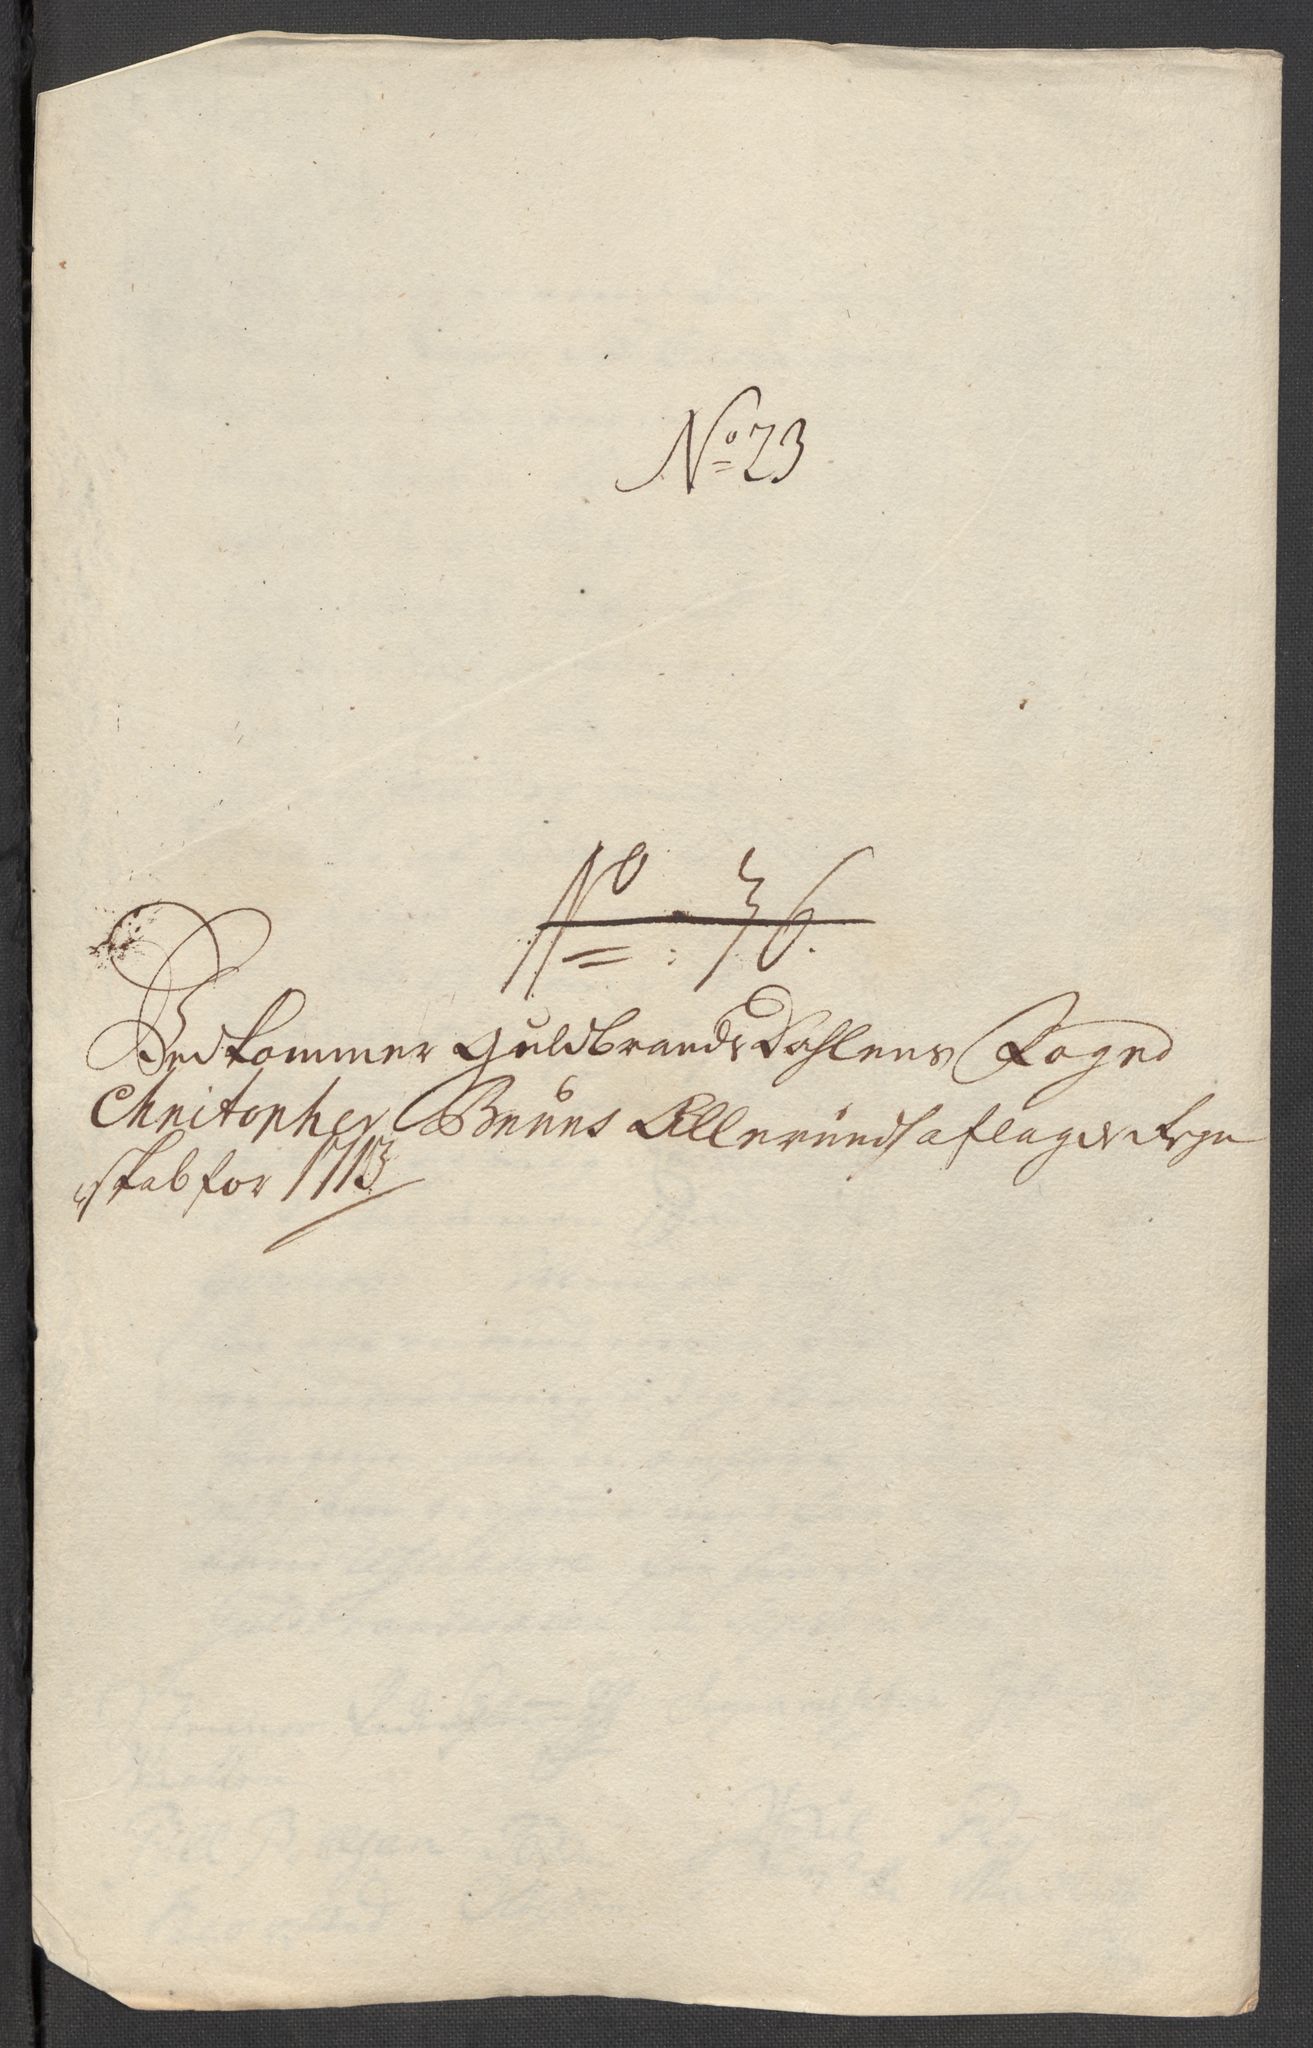 No 23
No : 36.
Vedkommer Guldbrands Dahlens Foged
Christopher Bruuns Allerunds aflagde Regn
skab for 1713